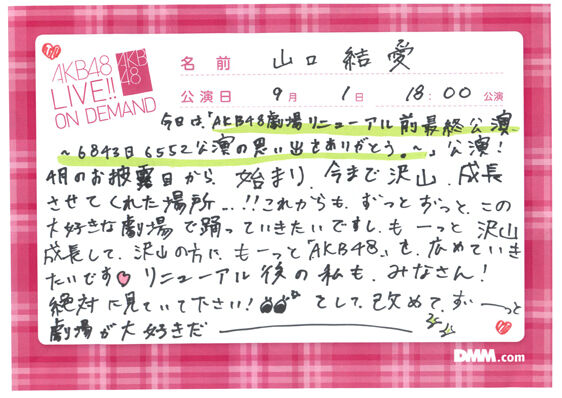 AKB48
LIVE!!
ON DEMAND
AKB
48
名前 山口 結愛
公演日 9月 1日 18:00 公演
今日は、「AKB48劇場リニューアル前最終公演
〜6843日6552公演の思い出をありがとう。〜」公演!
4月のお披露目から、始まり、今まで沢山、成長
させてくれた場所...!!これからも、ずっとずっと、この
大好きな劇場で踊っていきたいですし、もーっと沢山
成長して、沢山の方に、もーっと「AKB48」を、広めていき
たいです リニューアル後の私も、みなさん!
絶対に見ていて下さい! そして、改めて、ずーーっと
劇場が大好きだ
DMM.com